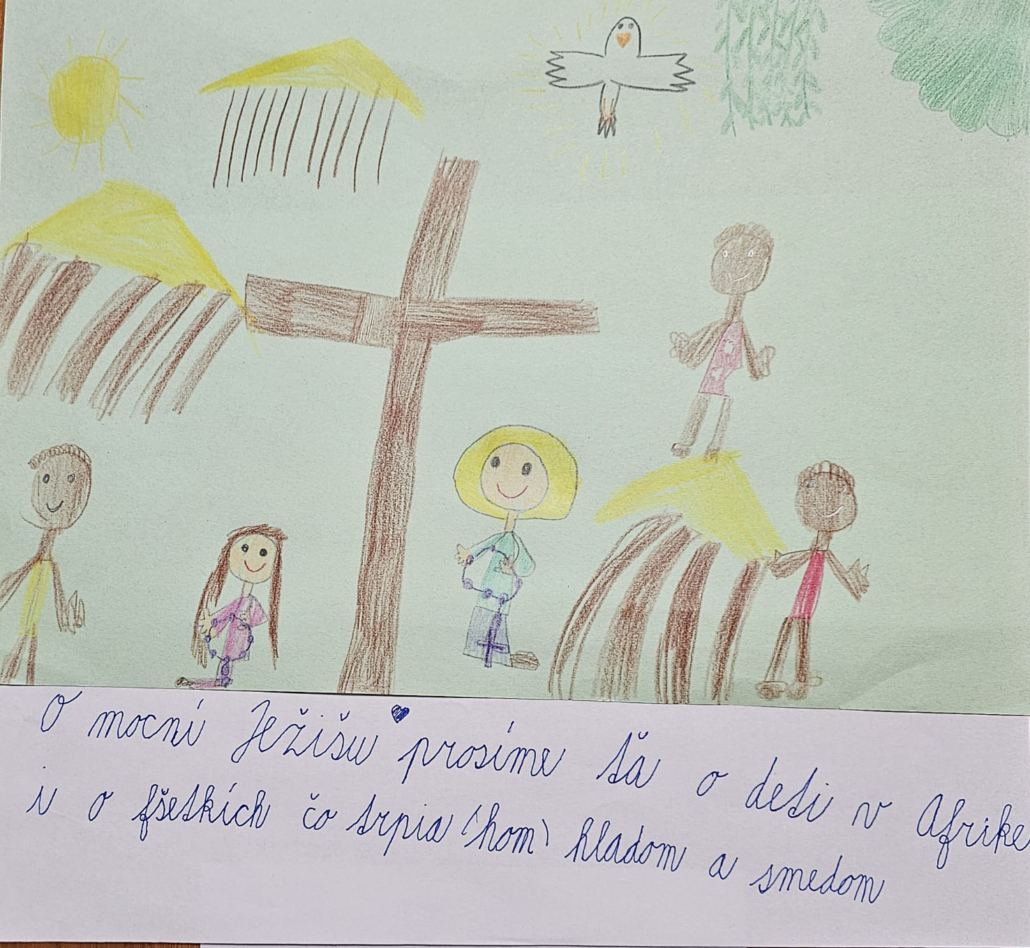 O mocní Ježišu prosíme ťa o deti v Afrike
i o fšetkích čo trpia (hom) hladom a smedom